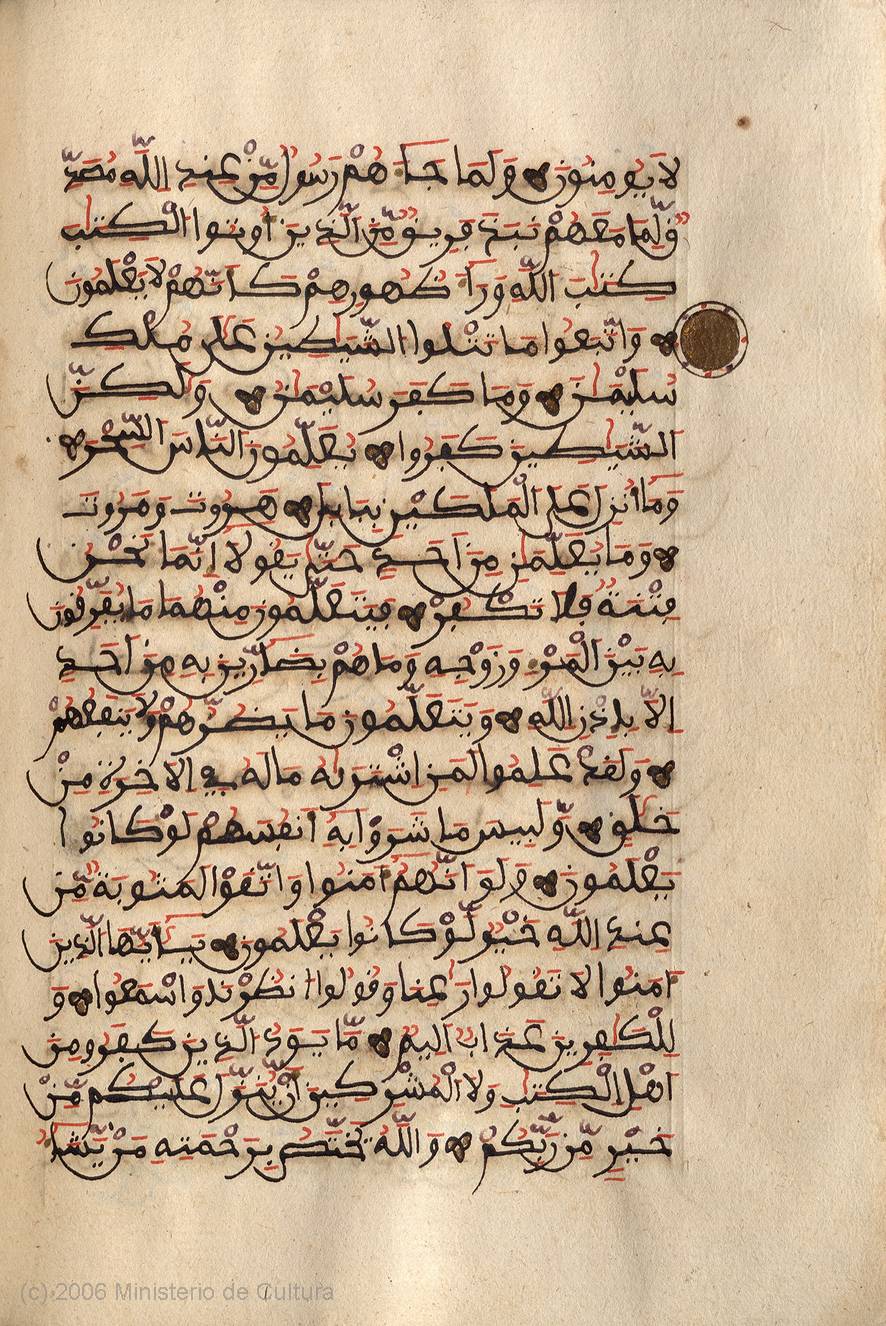 لا يومنون ولما جاهم رسول من عند الله مصد
ق لما معهم نبذ فريق من الذين اوتوا الكتب
كتب الله ورا ظهورهم كانهم لا يعلمون
واتبعوا ما تتلوا الشيطين على ملك
سليمن وما كفر سليمن ولكن
الشيطين كفروا يعلمون الناس السحر
وما انزل على الملكين ببابل هروت ومروت
وما يعلمن من احد حتى يقولا انما نحن
فتنة فلا تكفر فيتعلمون منهما ما يفرقون
به بين المر وزوجه وما هم بضارين به من احد
الا باذن الله ويتعلمون ما يضرهم ولا ينفعهم
ولقد علموا لمن اشتريه ماله في الاخرة من
خلق ولبيس ما شروا به انفسهم لو كانوا
يعلمون ولو انهم امنوا واتقوا لمثوبة من
عند الله خير لو كانوا يعلمون يايها الذين
امنوا لا تقولوا رعنا وقولوا انظرنا واسمعوا و
للكفرين عذاب اليم ما يود الذين كفروا من
اهل الكتب ولا المشركين ان ينزل عليكم من
خير من ربكم والله يختص برحمته من يشا
(c) 2006 Ministerio de Cultura